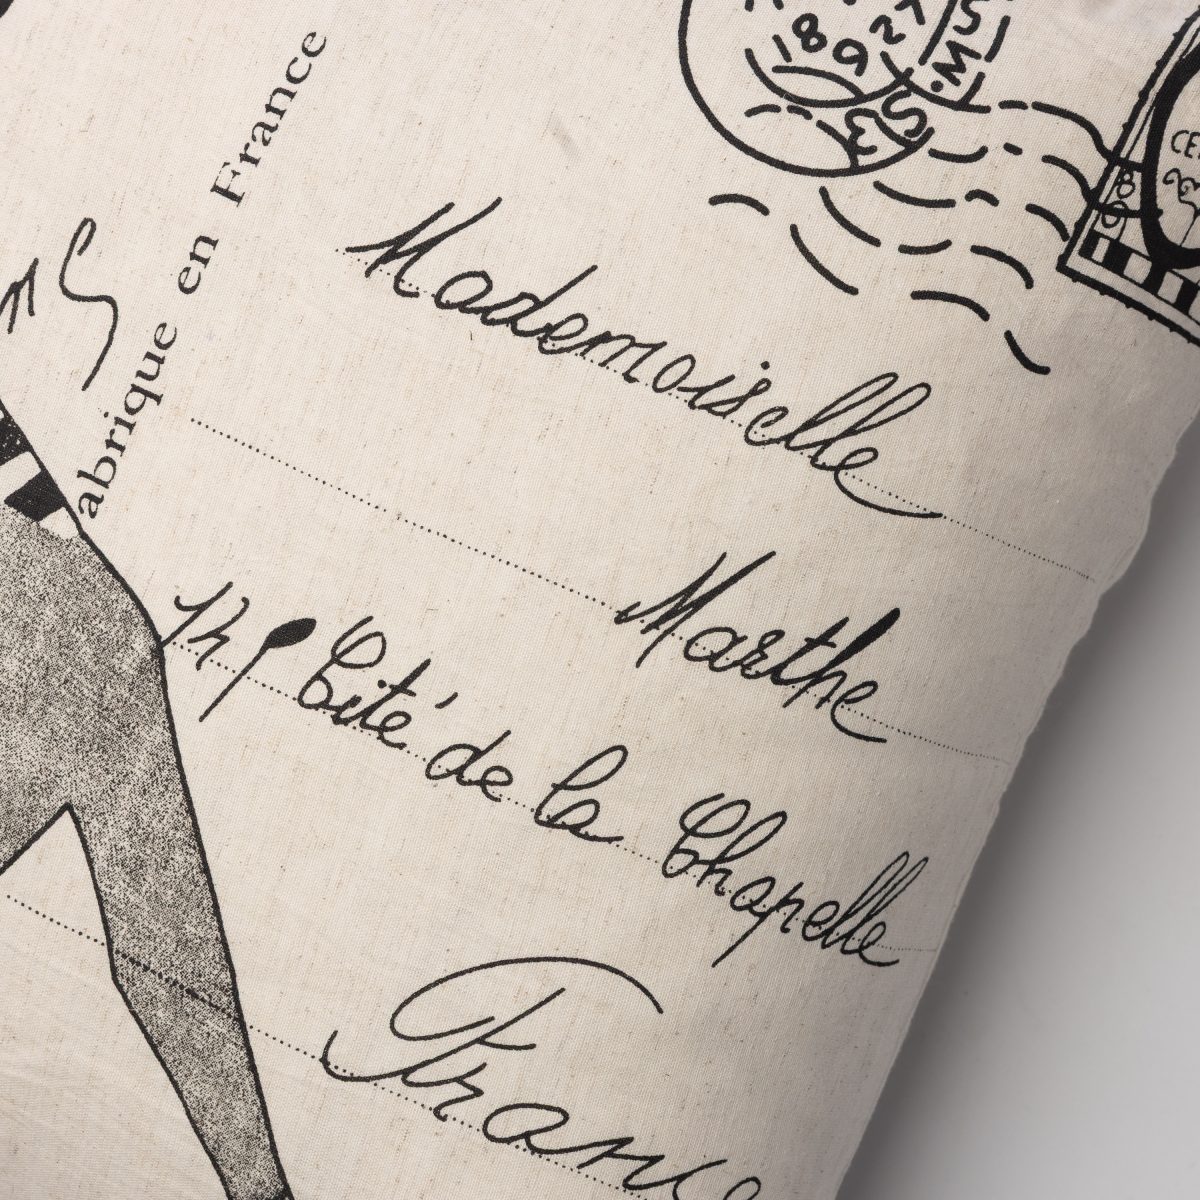 1897
27
S.M.S
CE
80
abrique en France
Mademoiselle
Marthe
Cité de la Chapelle
Franc